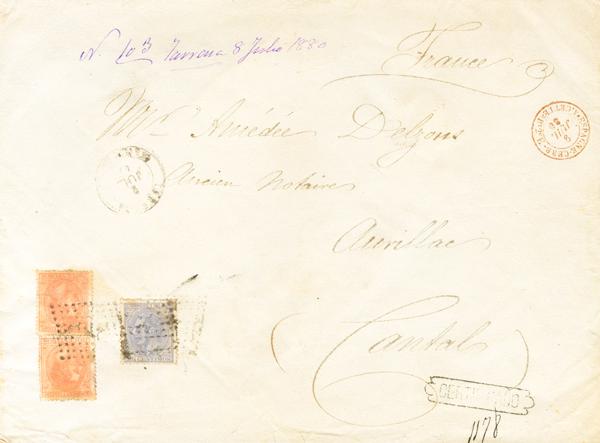 N. 103 Tarrasa 8 Julio 1880
France
Mr. Amédée Delzons
Ancien Notaire
Aurillac
Cantal
CERTIFICADO
1178